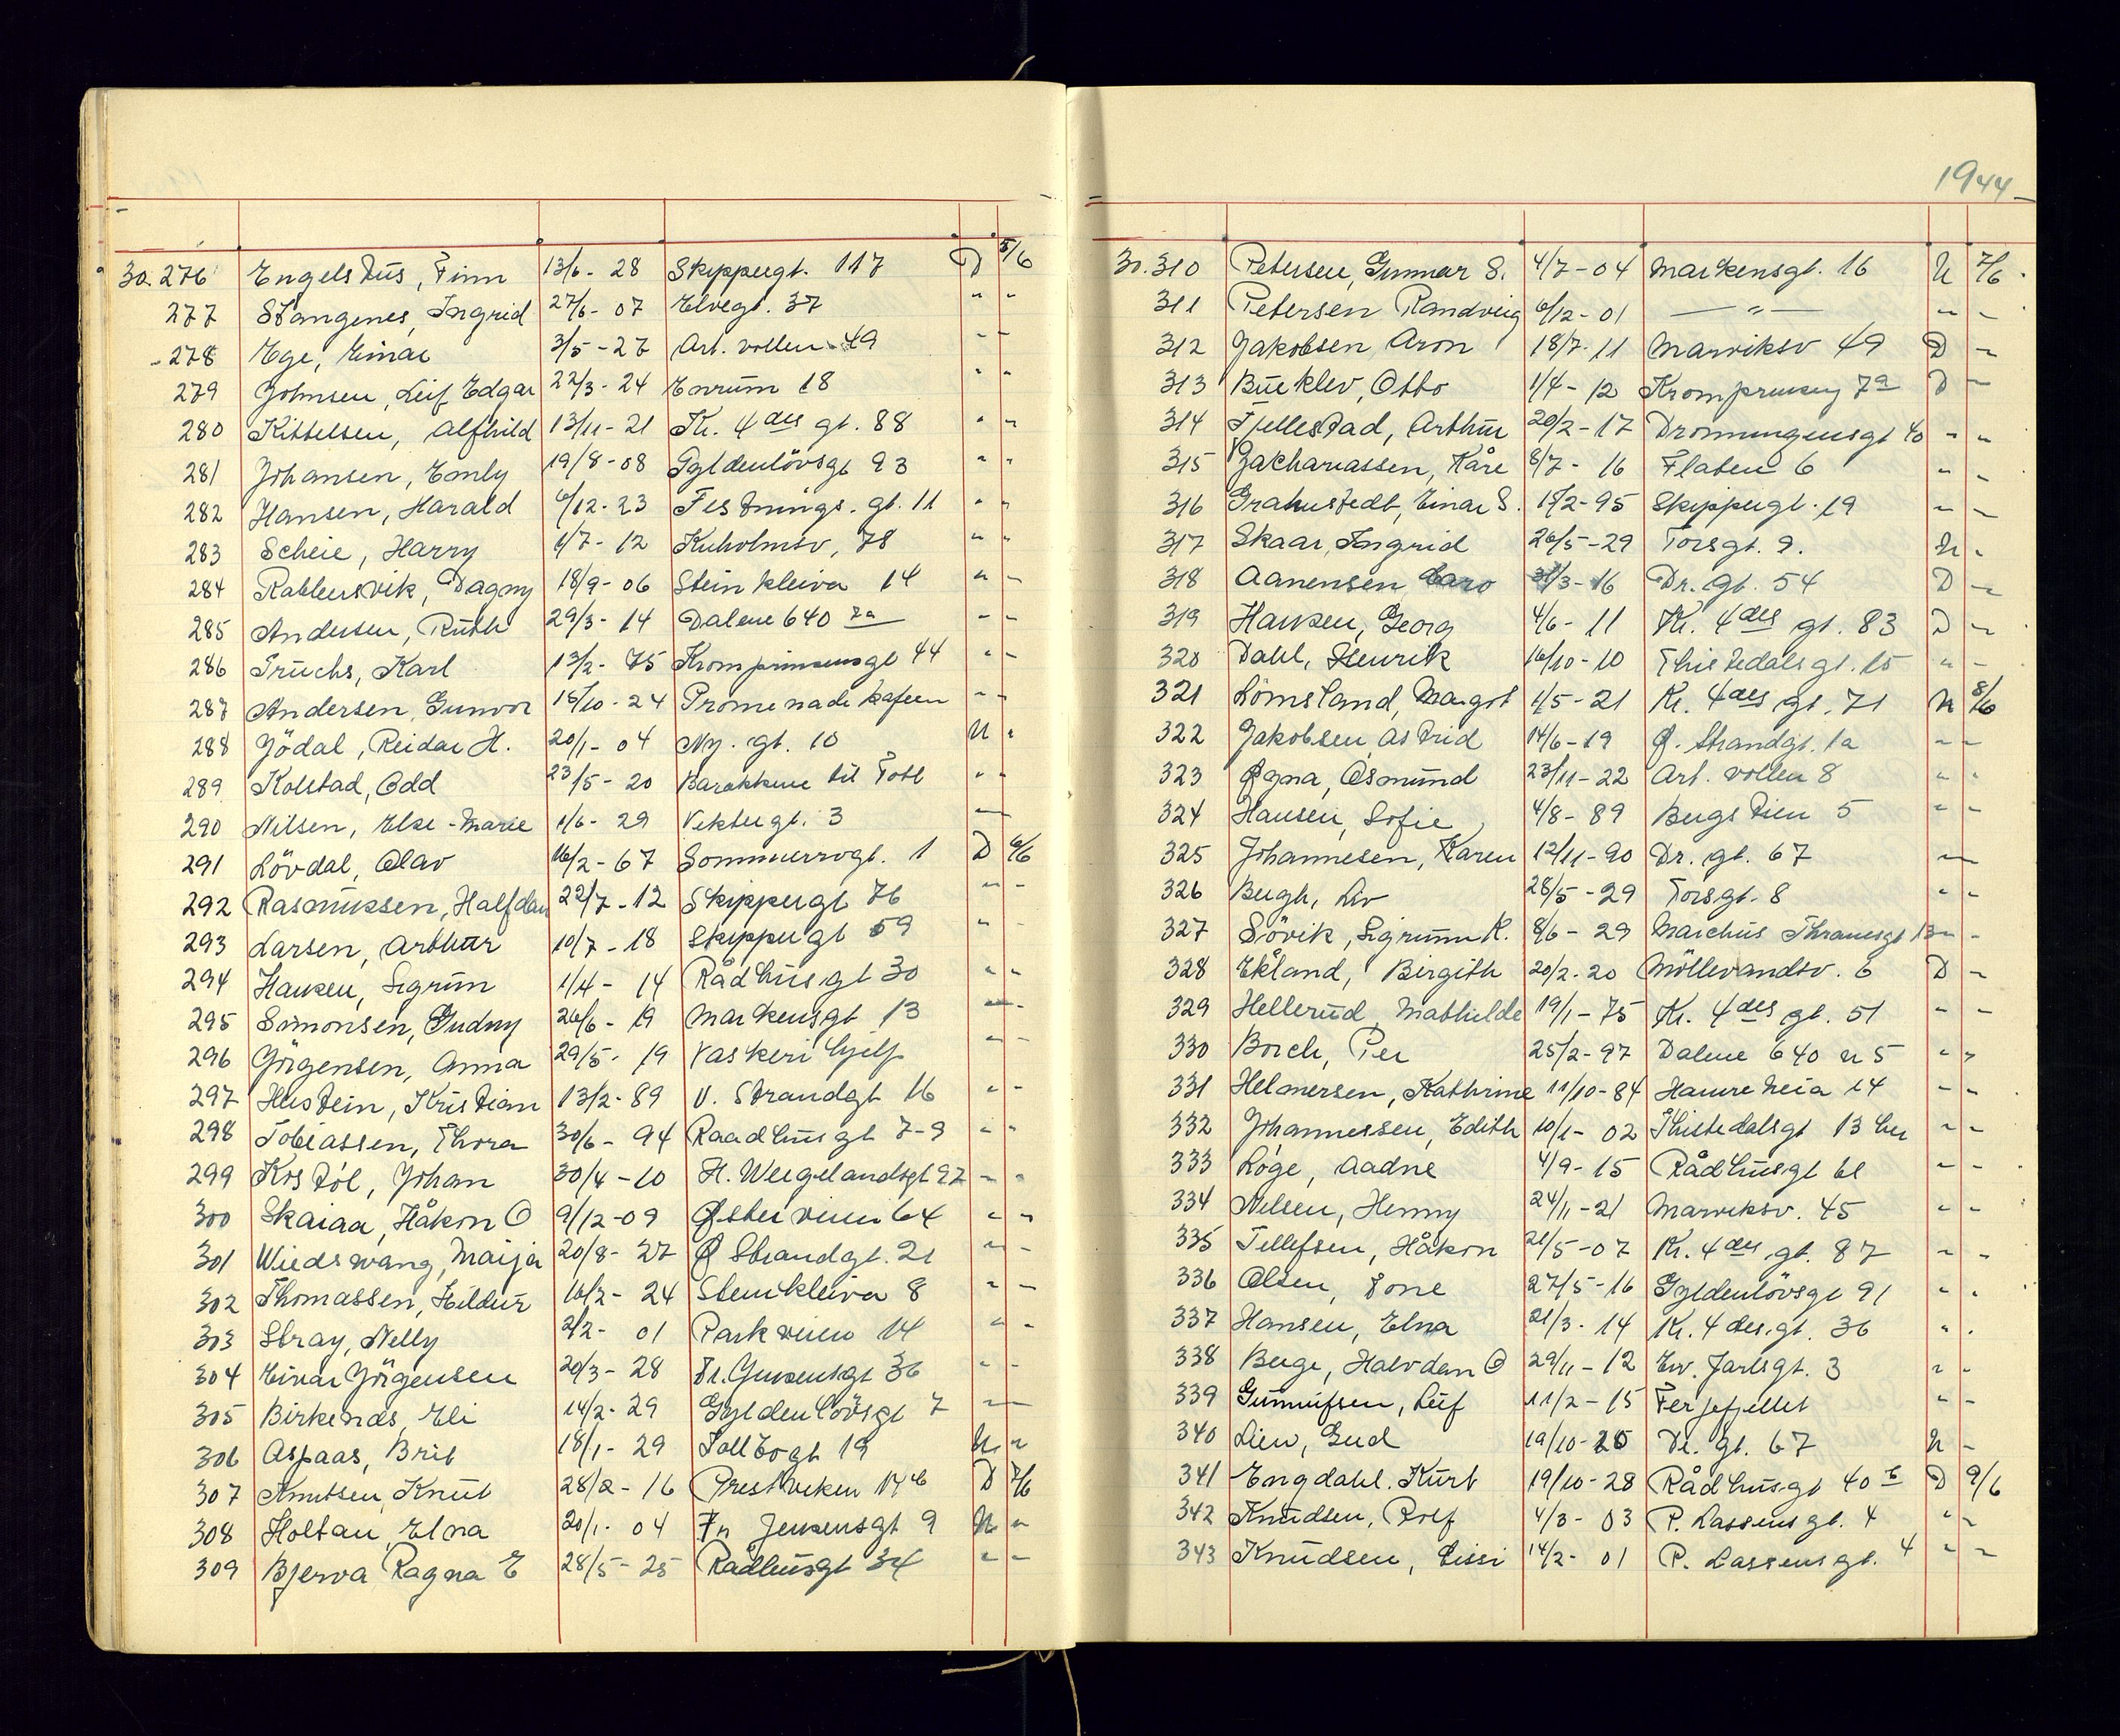 30.276 Engelstus, Finn 13/6-28 Skippergt. 117 D 5/6
277 Stangenes, Ingrid 27/6-07 Elvegt. 37 " "
278 Ege, Einar 3/5-27 Arb. vollen 49 " "
279 Johnsen, Leif Edgar 22/3-24 Enrum 18 " "
280 Kittelsen, Alfhild 13/11-21 Kr. 4des gt. 88 " "
281 Johansen, Emly 19/8-08 Gyldenlövsgt 93 " "
282 Hansen, Harald 6/12-23 Festnings. gt. 11 " "
283 Scheie, Harry 1/7-12 Kuholmsv, 78 " "
284 Rabbersvik, Dagny 18/9-06 Steinkleiva 14 " "
285 Andersen, Ruth 29/3-14 Dalene 640 7a " "
286 Truchs, Karl 13/2-75 Kromprinsensgt 44 " "
287 Andersen, Gunvor 18/10-24 Promenade kafeen " "
288 Jödal, Reidar H. 20/1-04 Ny. gt. 10 U "
289 Kolstad, Odd 23/5-20 Barakkene til Todt " "
290 Nilsen, Else-Marie 1/6-29 Vektergt. 3 " "
291 Lövdal, Olav 16/2-67 Sommerrogt. 1 D 6/6
292 Rasmussen, Halfdan 22/7-12 Skippergt 76 " "
293 Larsen, Arthur 10/7-18 Skippergt 59 " "
294 Hansen, Sigrun 1/4-14 Rådhusgt 30 " "
295 Simonsen, Gudny 26/6-19 Markensgt 13 " "
296 Jörgensen, Anna 29/5-19 Vaskeri hjelp " "
297 Hustein, Kristian 13/2-89 V. Strandgt 16 " "
298 Tobiassen, Thora 30/6-94 Raadhusgt 7-9 " "
299 Kostöl, Johan 30/4-10 H. Wergelandsgt 92 " "
300 Skaiaa, Håkon O 9/12-09 Østerveien 64 " "
301 Wiedswang, Maija 20/8-27 Ø Strandgt. 21 " "
302 Thomassen, Hildur 16/2-24 Stenkleiva 8 " "
303 Stray, Nelly 2/2-01 Parkveien 14 " "
304 Einar Jörgensen 20/3-28 Fr. Jensensgt 36 " "
305 Birkenes, Eli 14/2-29 Gyldenlövsgt 7 " "
306 Aspaas, Brit 18/1-29 Tollbogt 19 U "
307 Knutsen Knut 28/2-16 Prestveken 14b D 7/6
308 Holtan, Elna 20/1-04 Fr Jensensgt 9 U "
309 Bjerva Ragna E 28/5-25 Rådhusgt 34 " "
1944
30.310 Petersen, Gunnar S. 4/7-04 Markensgt. 16 U 7/6
311 Petersen Randveig 6/12-01 — " — " "
312 Jakobsen Aron 18/7-11 Marviksv 49 D "
313 Bueklev, Otto 1/4-12 Kromprinseng 7a D "
314 Fjellestad, Arthur 20/2-17 Dronningensgt 40 " "
315 Zachariassen, Kåre 8/7-16 Flaten 6 " "
316 Grahnstedt, Einar S. 15/2-95 Skippergt. 19 " "
317 Skaar, Ingrid 26/5-29 Torsgt. 9. U "
318 Aanensen Caro 31/3-16 Dr. gt. 54 D "
319 Hansen, Georg 4/6-11 Kr. 4des gt. 83 D "
320 Dahl, Henrik 16/10-10 Thistedalsgt. 15 " "
321 Lömsland, Margot 1/5-21 Kr. 4des gt. 71 U 8/6
322 Jakobsen, Astrid 14/6-19 Ø. Strandgt. 1a " "
323 Øgna, Osmund 23/11-22 Arb. vollen 8 " "
324 Hansen, Sofie 4/8-89 Bergstien 5 " "
325 Johannesen, Karen 12/11-90 Dr. gt. 67 " "
326 Bergh, Liv 28/5-29 Torsgt. 8 " "
327 Sövik, Sigrunn K. 8/6-29 Marchus Thranesgt 13 " "
328 Ekland, Birgith 20/2-20 Möllevandsv. 6 D "
329 Hellerud Mathilde 19/1-75 Kr. 4des gt. 51 " "
330 Borch, Per 25/2-97 Dalene 640 n 5 " "
331 Helmersen, Kathrine 11/10-84 Hamreheia 14 " "
332 Johannessen, Edith 10/1-02 Thistedalsgt 13 " "
333 Löge, Aadne 4/9-15 Rådhusgt 61 " "
334 Nilsen, Henny 24/11-21 Marviksv. 45 " "
335 Tellefsen, Håkon 21/5-07 Kr. 4des gt. 87 " "
336 Olsen, Tone 27/5-16 Gyldenlövsgt 91 " "
337 Hansen, Elna 21/3-14 Kr. 4des. gt. 36 " "
338 Berge, Halvdan O 29/11-12 Erv. Jarlsgt. 3 " "
339 Gunnufsen, Leif 11/2-15 Ferjefjellet " "
340 Lien, Gud 19/10-25 Dr. gt. 67 U "
341 Engdahl. Kurt 19/10-28 Rådhusgt 40 b D 9/6
342 Knudsen, Rolf 4/3-03 P. Lassensgt. 4 " "
343 Knudsen, Lissi 14/2-01 P. Lassensgt. 4 " "